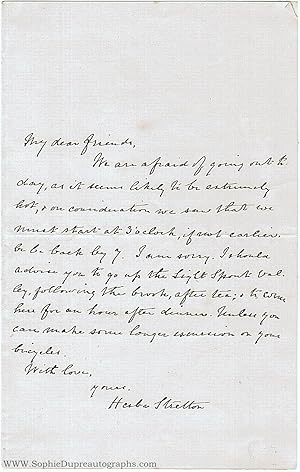 My dear friends,
We are afraid of going out to
day, as it seems likely to be extremely
hot, & on consideration we saw that we
must start at 3 o'clock, if not earlier
to be back by 7. I am sorry. I should
advise you to go up the Light Spout Val-
ley, following the brook, after tea; & to come
here for an hour after dinner. Unless you
can make some longer excursion on your
bicycles.
With love,
yours.
Hesba Stretton
www.SophieDupreautographs.com